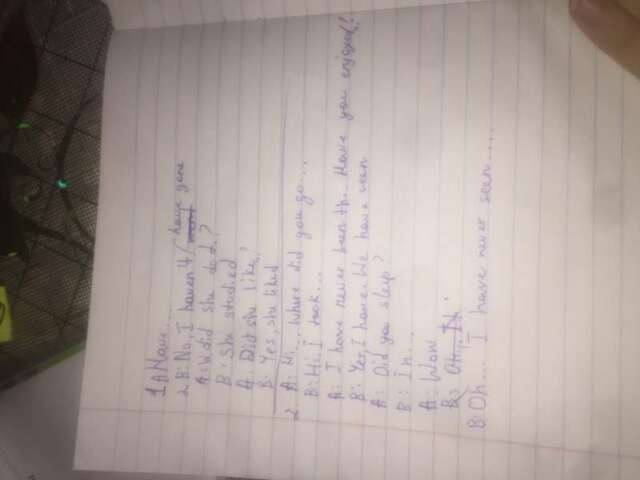 1 A Have....
2 B: No, I haven't / have gone
A: W. did she do...?
B: She studied
A: Did she like..?
B: Yes, she liked
2. A: Hi, ... where did you go....
B: Hi, I took...
A: I have never been th... Have you enjoyed?
B: Yes, I have. We have seen
A: Did you sleep?
B: I n....
A: Wow
B: Oh,...
B: Oh... I have never seen.....